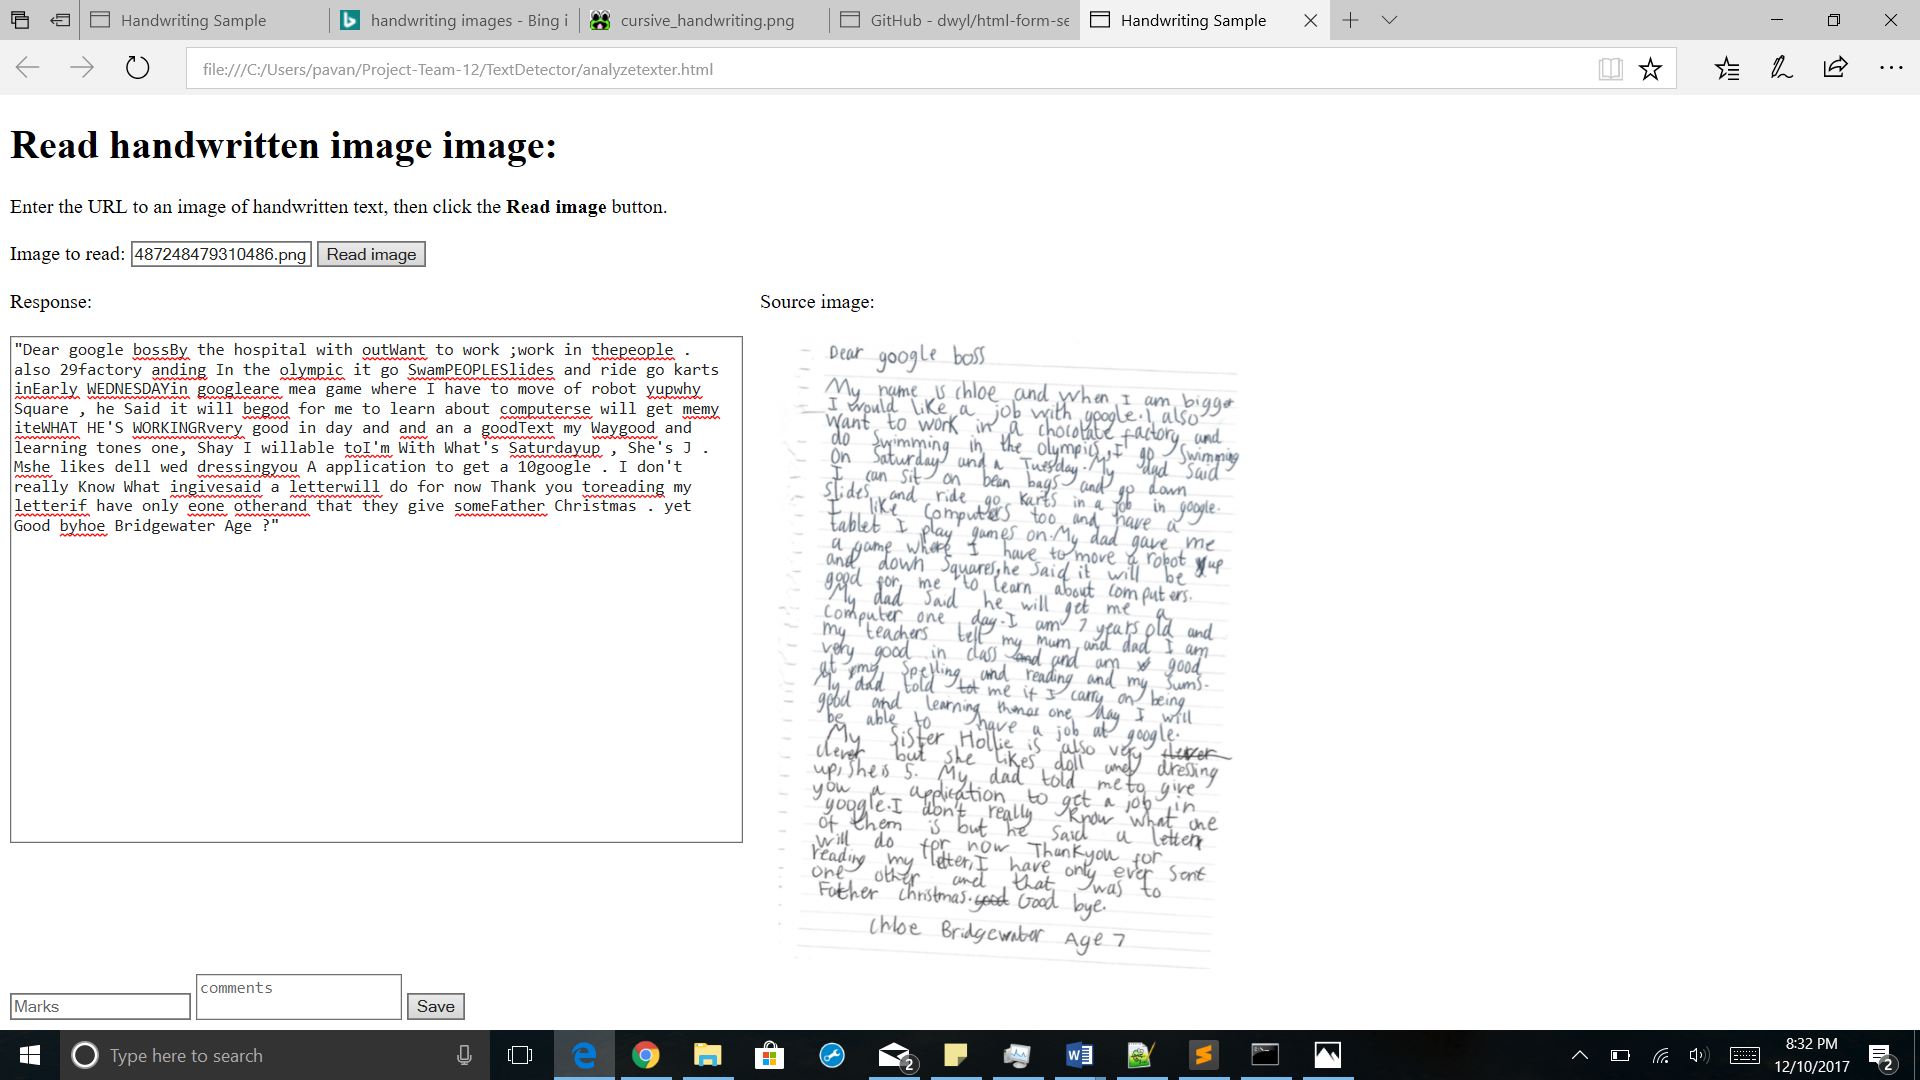 Handwriting Sample
handwriting images - Bing i
cursive_handwriting.png
GitHub - dwyl/html-form-se
Handwriting Sample
file:///C:/Users/pavan/Project-Team-12/TextDetector/analyzetexter.html
Read handwritten image image:
Enter the URL to an image of handwritten text, then click the Read image button.
Image to read: 487248479310486.png Read image
Response:
"Dear google bossBy the hospital with outWant to work ;work in thepeople .
also 29factory anding In the olympic it go SwamPEOPLESlides and ride go karts
inEarly WEDNESDAYin googleare mea game where I have to move of robot yupwhy
Square , he Said it will begod for me to learn about computerse will get memy
iteWHAT HE'S WORKINGRvery good in day and and an a goodText my Waygood and
learning tones one, Shay I willable toI'm With What's Saturdayup , She's J .
Mshe likes dell wed dressingyou A application to get a 10google . I don't
really Know What ingivesaid a letterwill do for now Thank you toreading my
letterif have only eone otherand that they give someFather Christmas . yet
Good byhoe Bridgewater Age ?"
Source image:
Dear google boss
My name is chloe and when I am bigger
I would like a job with google. I also
Want to work in a chocolate factory and
do Swimming in the olympics, I go Swimming
On Saturday and a Tuesday. My dad Said
I can sit on bean bags and go down
Slides and ride go karts in a job in google.
I like Computers too and have a
tablet I play games on. My dad gave me
a game where I have to move a robot up
and down Squares, he Said it will be
good for me to learn about computers.
My dad Said he will get me a
Computer one day. I am 7 years old and
my teachers tell my mum and dad I am
very good in class and am good
at my Spelling and reading and my Sums.
My dad told me if I carry on being
good and learning one day I will
be able to have a job at google.
My Sister Hollie is also very
clever but she likes doll and dressing
up, She is 5. My dad told me to give
you a application to get a job in
google. I don't really Know what one
of them is but he Said a letter
will do for now Thankyou for
reading my letter, I have only ever Sent
one other and that was to
Father christmas. Good bye.
Chloe Bridgewater Age 7
Marks
comments
Save
Type here to search
2
8:32 PM
12/10/2017
2